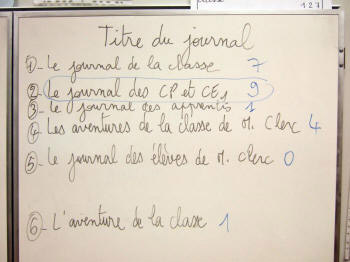 127
Titre du journal
1- Le journal de la classe 7
2- Le journal des CP et CE1 9
3- Le journal des apprentis 1
4- Les aventures de la classe de M. Clerc 4
5- Le journal des élèves de M. Clerc 0
6- L'aventure de la classe 1